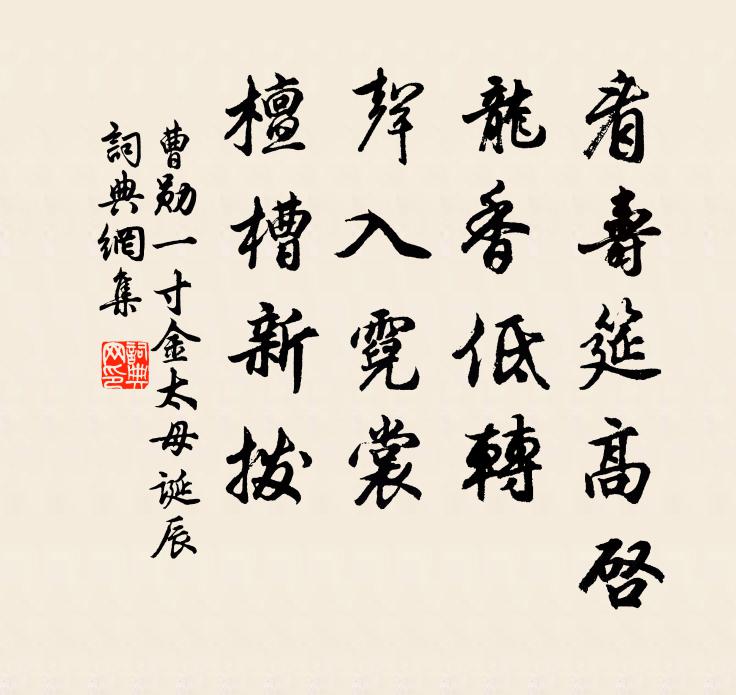 看壽筵高啓
龍香低轉
聲入霓裳
檀槽新撥
曹勛一寸金太母誕辰
詞典網集
詞典网印